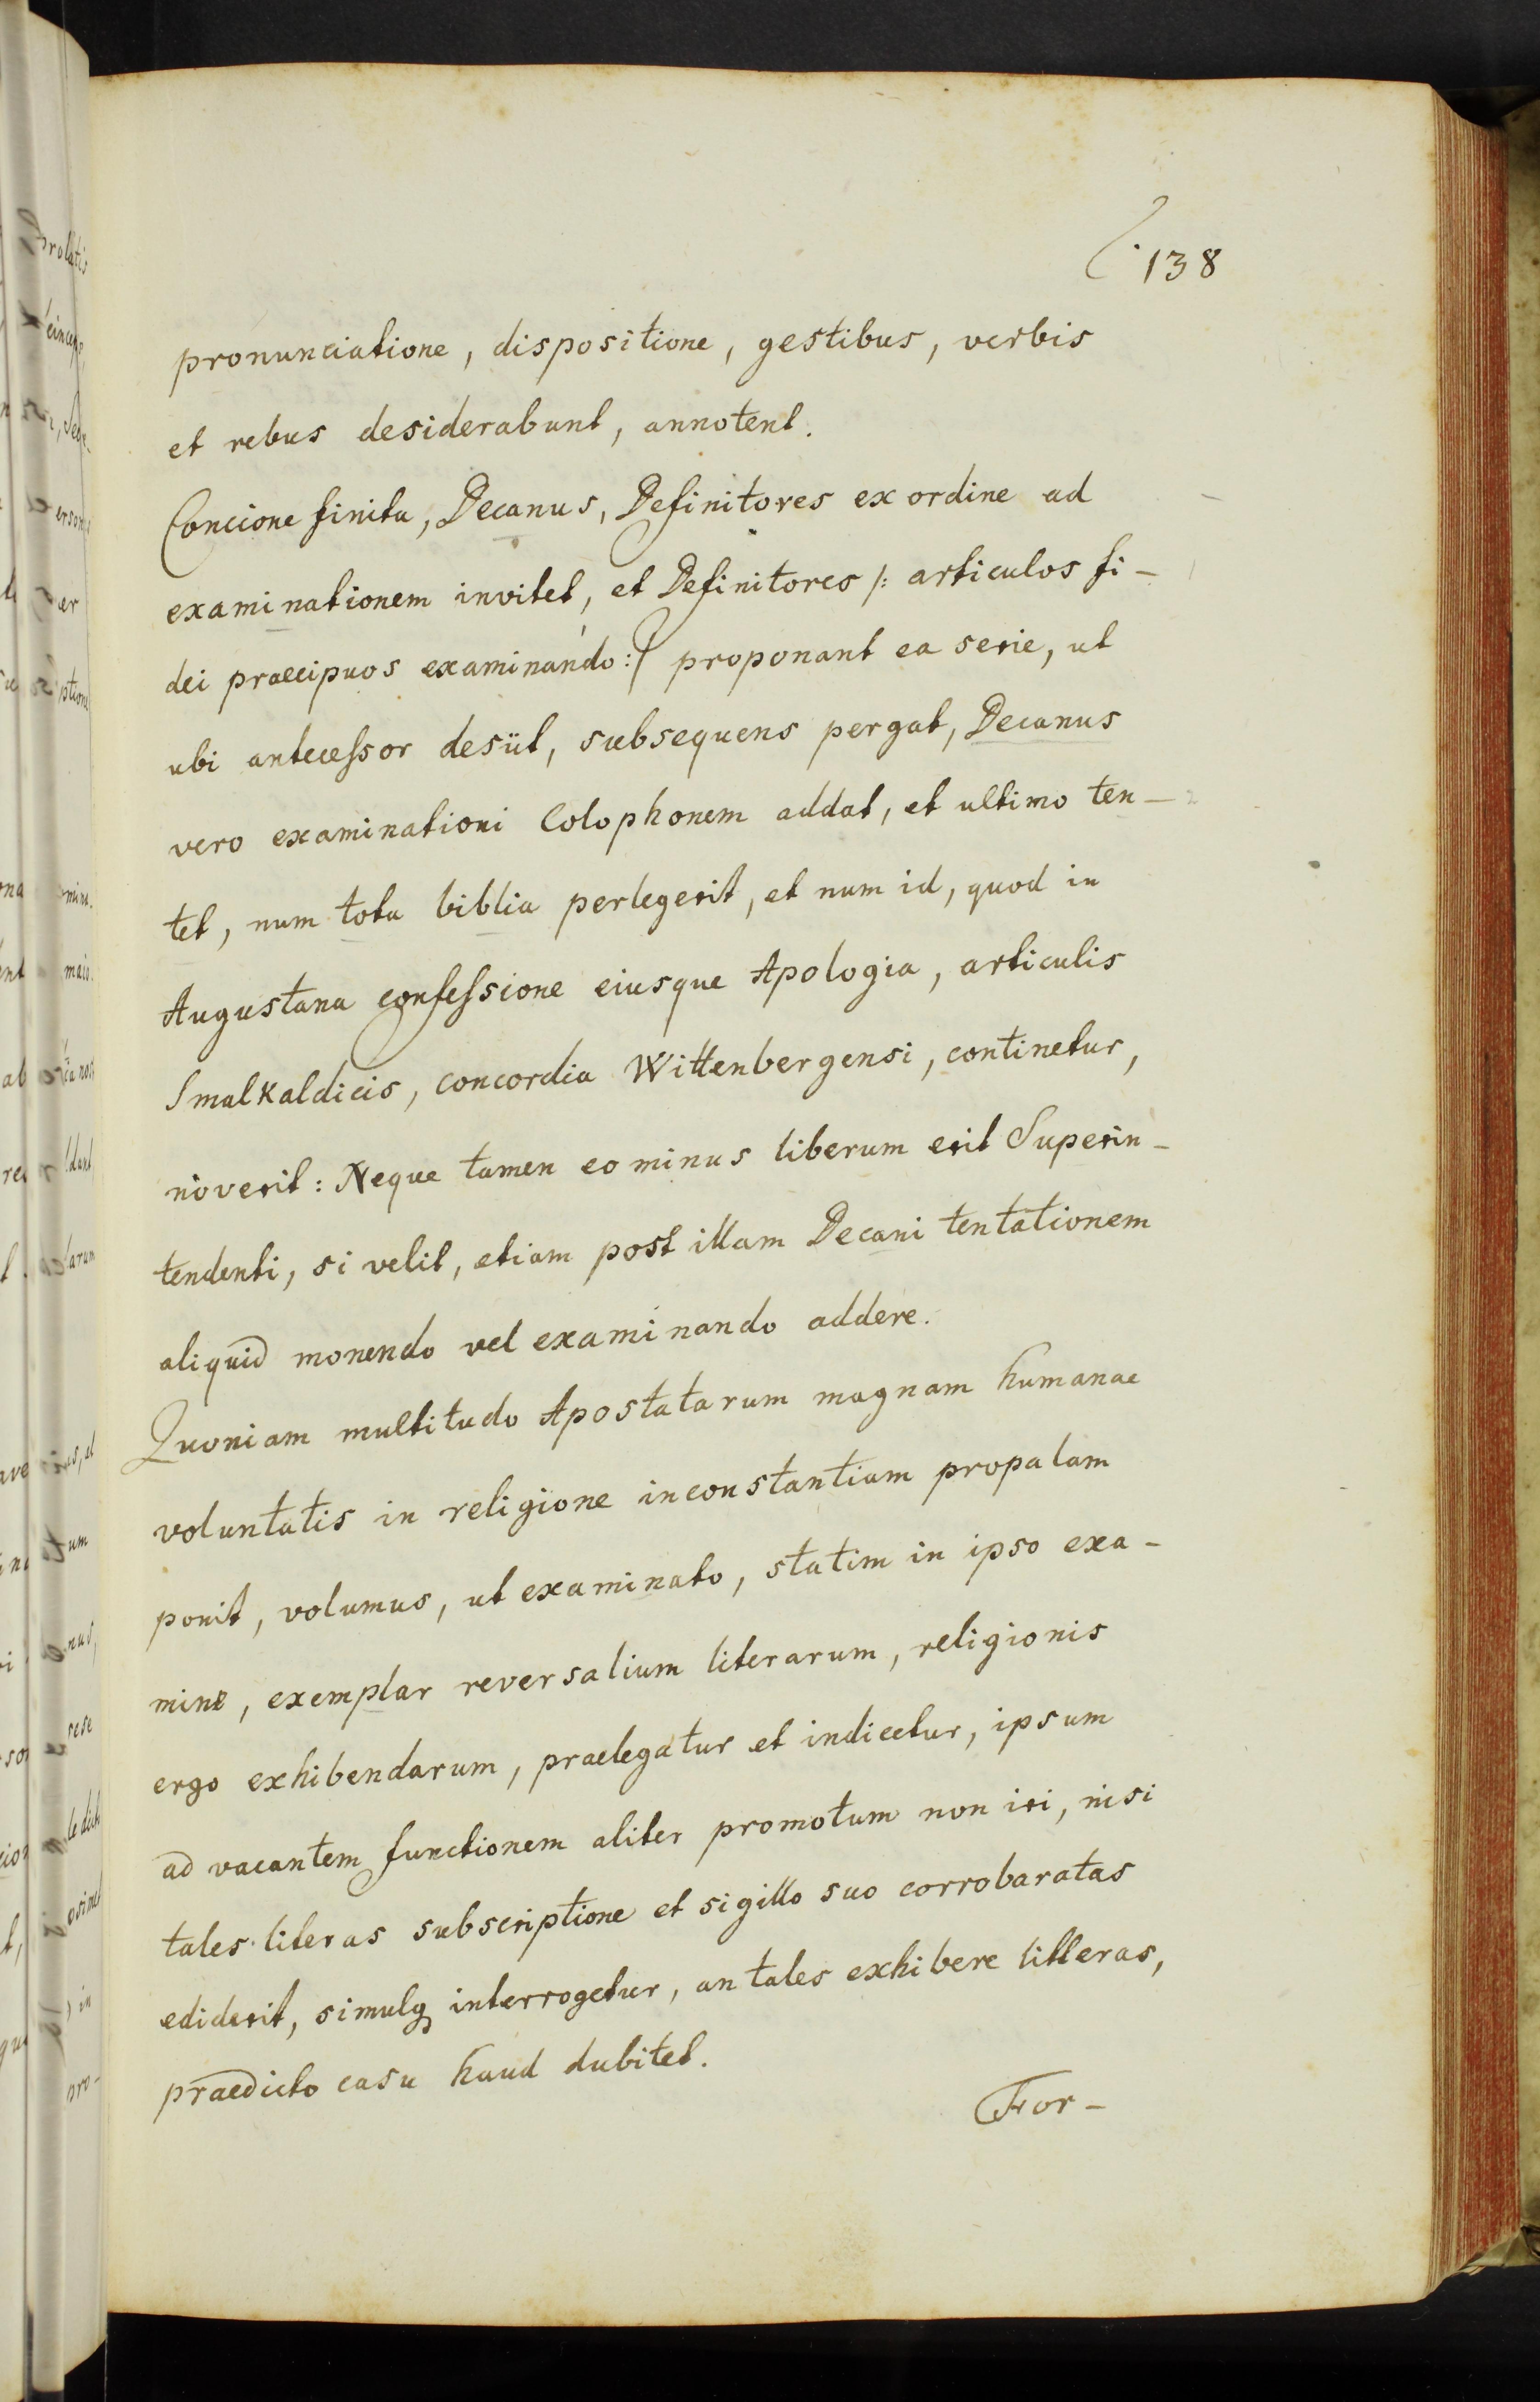 138
pronunciatione, dispositione, gestibus, verbis
et rebus desiderabunt, annotent.
Concione finita, Decanus, Definitores ex ordine ad
examinationem invitet, et Definitores /: articulos fi-
dei praecipuos examinando :/ proponant ea serie, ut
ubi antecessor desiit, subsequens pergat, Decanus
vero examinationi Colophonem addat, et ultimo ten-
tet, num tota biblia perlegerit, et num id, quod in
Augustana confessione eiusque Apologia, articulis
Smalkaldicis, concordia Wittenbergensi, continetur,
noverit: Neque tamen eo minus liberum erit Superin-
tendenti, si velit, etiam post illam Decani tentationem
aliquid monendo vel examinando addere.
Quoniam multitudo Apostatarum magnam humanae
voluntatis in religione inconstantiam propalam
ponit, volumus, ut examinato, statim in ipso exa-
mine, exemplar reversalium literarum, religionis
ergo exhibendarum, praelegatur et indicetur, ipsum
ad vacantem functionem aliter promotum non iri, nisi
tales literas subscriptione et sigillo suo corrobaratas
ediderit, simulq interrogetur, an tales exhibere litteras,
praedicto casu haud dubitet.
For-